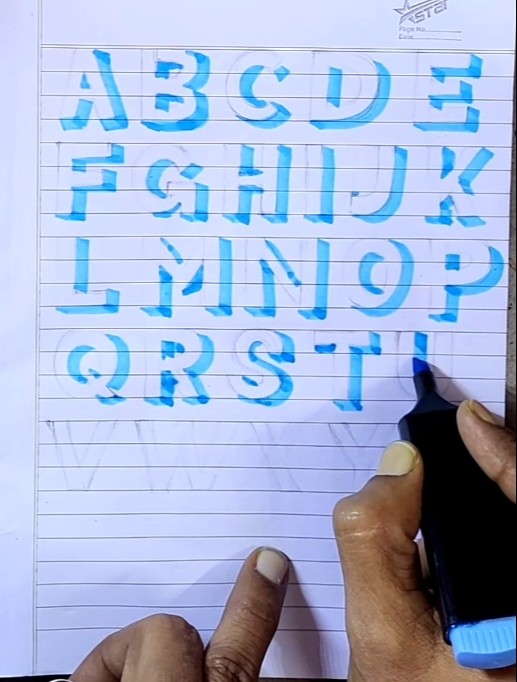 Star
Page No.
Date
A B C D E
F G H I J K
L M N O P
Q R S T U
V W X Y